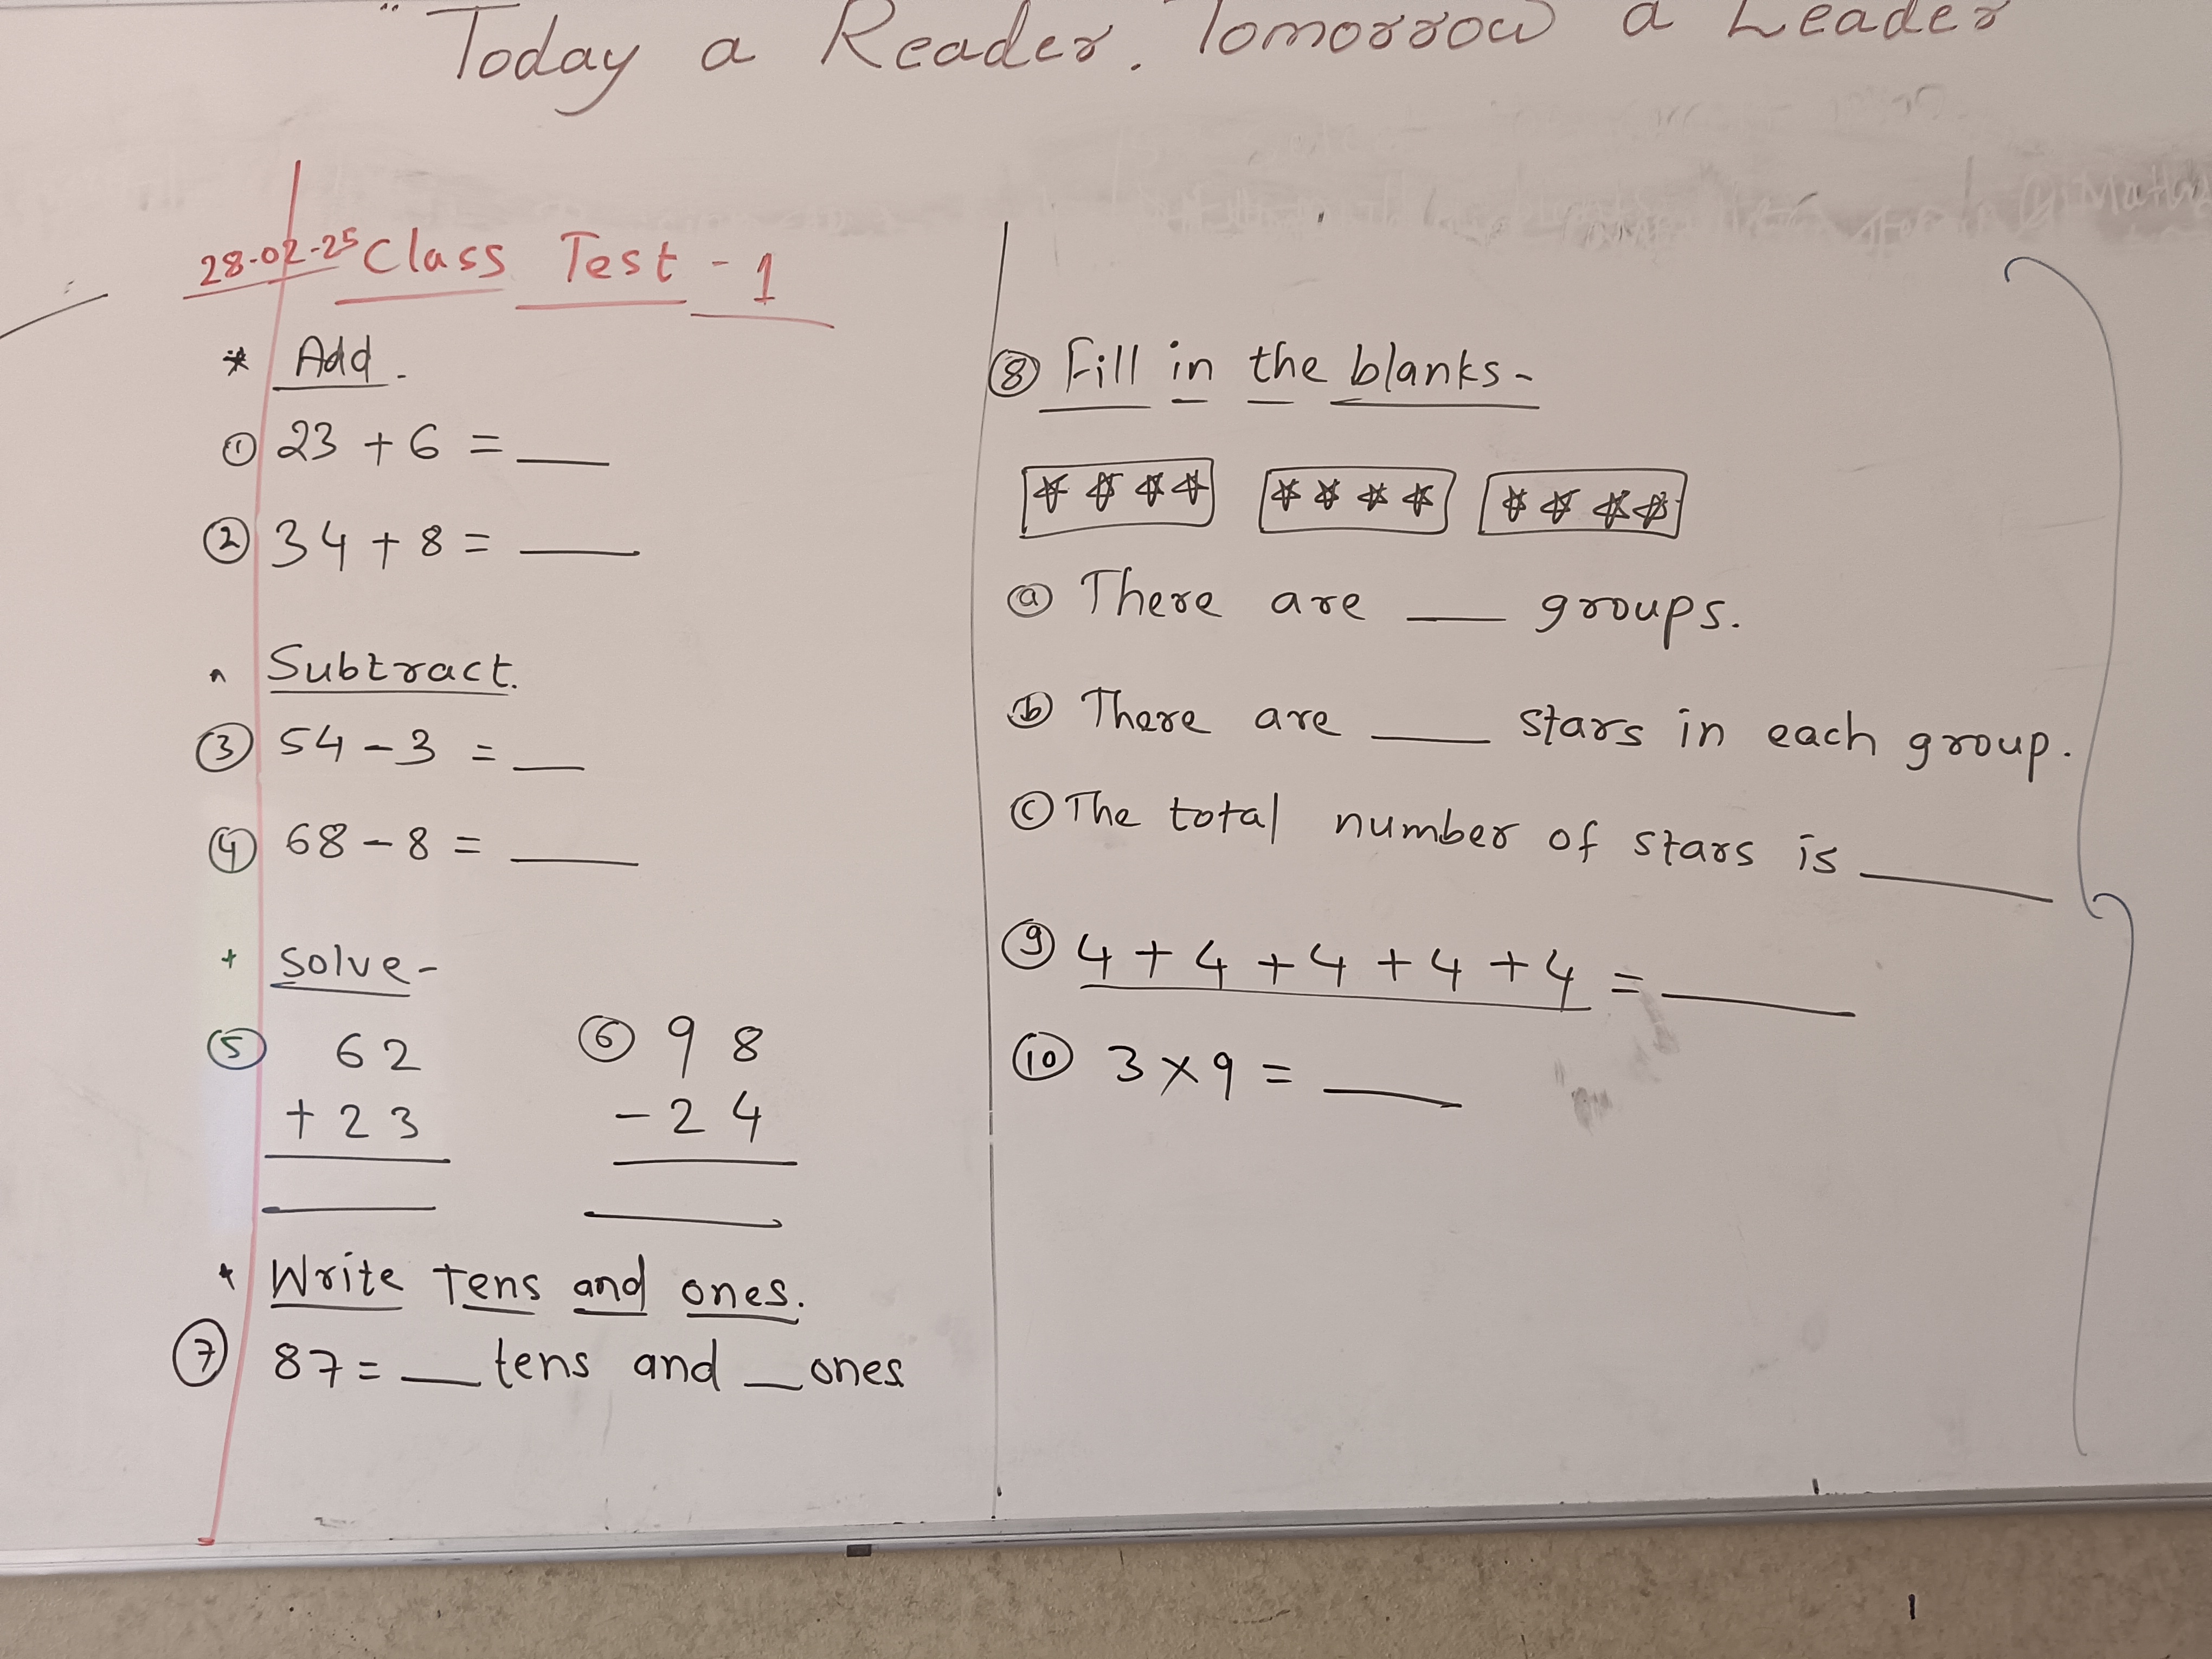 "Today a Reader. Tomorrow a Leader
28-02-25 Class Test - 1
* Add.
① 23 + 6 = ___
② 34 + 8 = ___
Subtract.
③ 54 - 3 = ___
④ 68 - 8 = ___
+ Solve-
⑤ 62 ⑥ 98
+ 23 - 24
* Write Tens and ones.
⑦ 87 = ___ tens and ___ ones
⑧ Fill in the blanks-
ⓐ There are ___ groups.
ⓑ There are ___ stars in each group.
ⓒ The total number of stars is ___
⑨ 4 + 4 + 4 + 4 + 4 = ___
⑩ 3 × 9 = ___